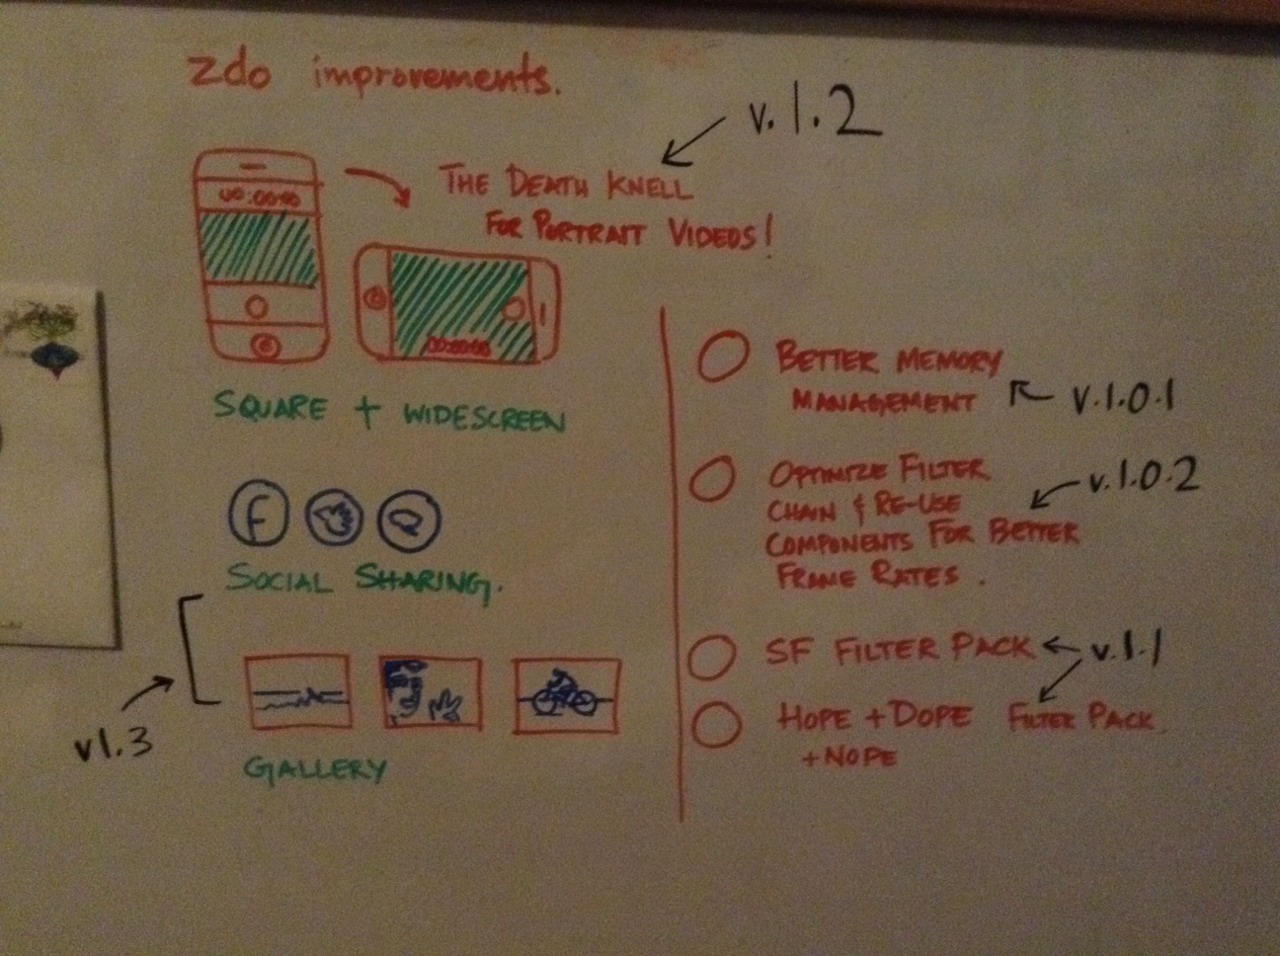 zdo improvements.
v. 1.2
THE DEATH KNELL
FOR PORTRAIT VIDEOS!
00:00:00
00:00:00
SQUARE + WIDESCREEN
f
SOCIAL SHARING.
v1.3
GALLERY
BETTER MEMORY
MANAGEMENT
v.1.0.1
OPTIMIZE FILTER
CHAIN & RE-USE
COMPONENTS FOR BETTER
FRAME RATES.
v.1.0.2
SF FILTER PACK
v.1.1
HOPE + DOPE FILTER PACK
+ NOPE